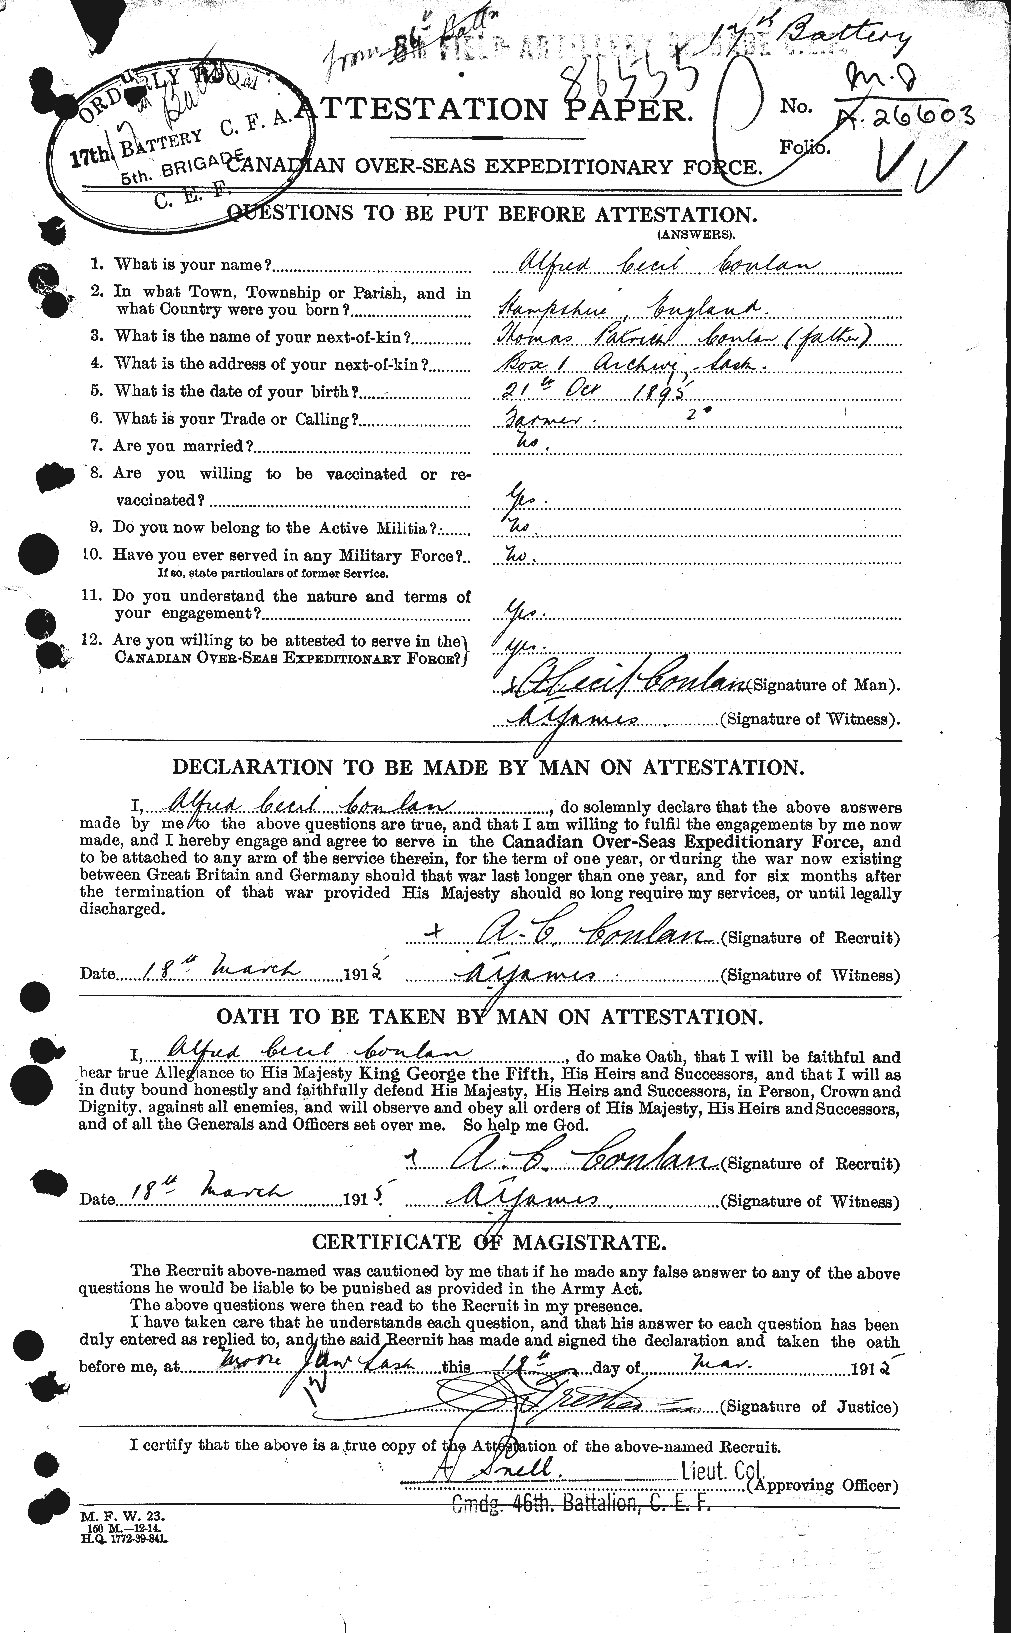 17th Battery
from 46th Battn
FIELD ARTILLERY BRIGADE
86555
M.D
ORDERLY ROOM
17th BATTERY C. F. A.
5th. BRIGADE
C. E. F.
ATTESTATION PAPER.
No. A.26603
Folio.
CANADIAN OVER-SEAS EXPEDITIONARY FORCE.
QUESTIONS TO BE PUT BEFORE ATTESTATION.
(ANSWERS).
1. What is your name? Alfred Cecil Conlan
2. In what Town, Township or Parish, and in
what Country were you born? Hampshire, England.
3. What is the name of your next-of-kin? Thomas Patrick Conlan (father)
4. What is the address of your next-of-kin? Box 1 Archive, Sask.
5. What is the date of your birth? 21st Oct 1895
6. What is your Trade or Calling? Farmer.
7. Are you married? No.
8. Are you willing to be vaccinated or re-
vaccinated? Yes.
9. Do you now belong to the Active Militia? No.
10. Have you ever served in any Military Force? No.
If so, state particulars of former Service.
11. Do you understand the nature and terms of
your engagement? Yes.
12. Are you willing to be attested to serve in the
CANADIAN OVER-SEAS EXPEDITIONARY FORCE? Yes.
A Cecil Conlan (Signature of Man).
A. James (Signature of Witness).
DECLARATION TO BE MADE BY MAN ON ATTESTATION.
I, Alfred Cecil Conlan, do solemnly declare that the above answers
made by me to the above questions are true, and that I am willing to fulfil the engagements by me now
made, and I hereby engage and agree to serve in the Canadian Over-Seas Expeditionary Force, and
to be attached to any arm of the service therein, for the term of one year, or during the war now existing
between Great Britain and Germany should that war last longer than one year, and for six months after
the termination of that war provided His Majesty should so long require my services, or until legally
discharged.
A. C. Conlan (Signature of Recruit)
Date 18th March 1915 A. James (Signature of Witness)
OATH TO BE TAKEN BY MAN ON ATTESTATION.
I, Alfred Cecil Conlan, do make Oath, that I will be faithful and
bear true Allegiance to His Majesty King George the Fifth, His Heirs and Successors, and that I will as
in duty bound honestly and faithfully defend His Majesty, His Heirs and Successors, in Person, Crown and
Dignity, against all enemies, and will observe and obey all orders of His Majesty, His Heirs and Successors,
and of all the Generals and Officers set over me. So help me God.
A. C. Conlan (Signature of Recruit)
Date 18th March 1915 A. James (Signature of Witness)
CERTIFICATE OF MAGISTRATE.
The Recruit above-named was cautioned by me that if he made any false answer to any of the above
questions he would be liable to be punished as provided in the Army Act.
The above questions were then read to the Recruit in my presence.
I have taken care that he understands each question, and that his answer to each question has been
duly entered as replied to, and the said Recruit has made and signed the declaration and taken the oath
before me, at Moose Jaw Sask this 18th day of Mar. 1915
(Signature of Justice)
I certify that the above is a true copy of the Attestation of the above-named Recruit.
A Snell. Lieut. Col.
(Approving Officer)
Cmdg. 46th. Battalion, C. E. F.
M. F. W. 23.
150 M.—12-14.
H.Q. 1772-39-841.